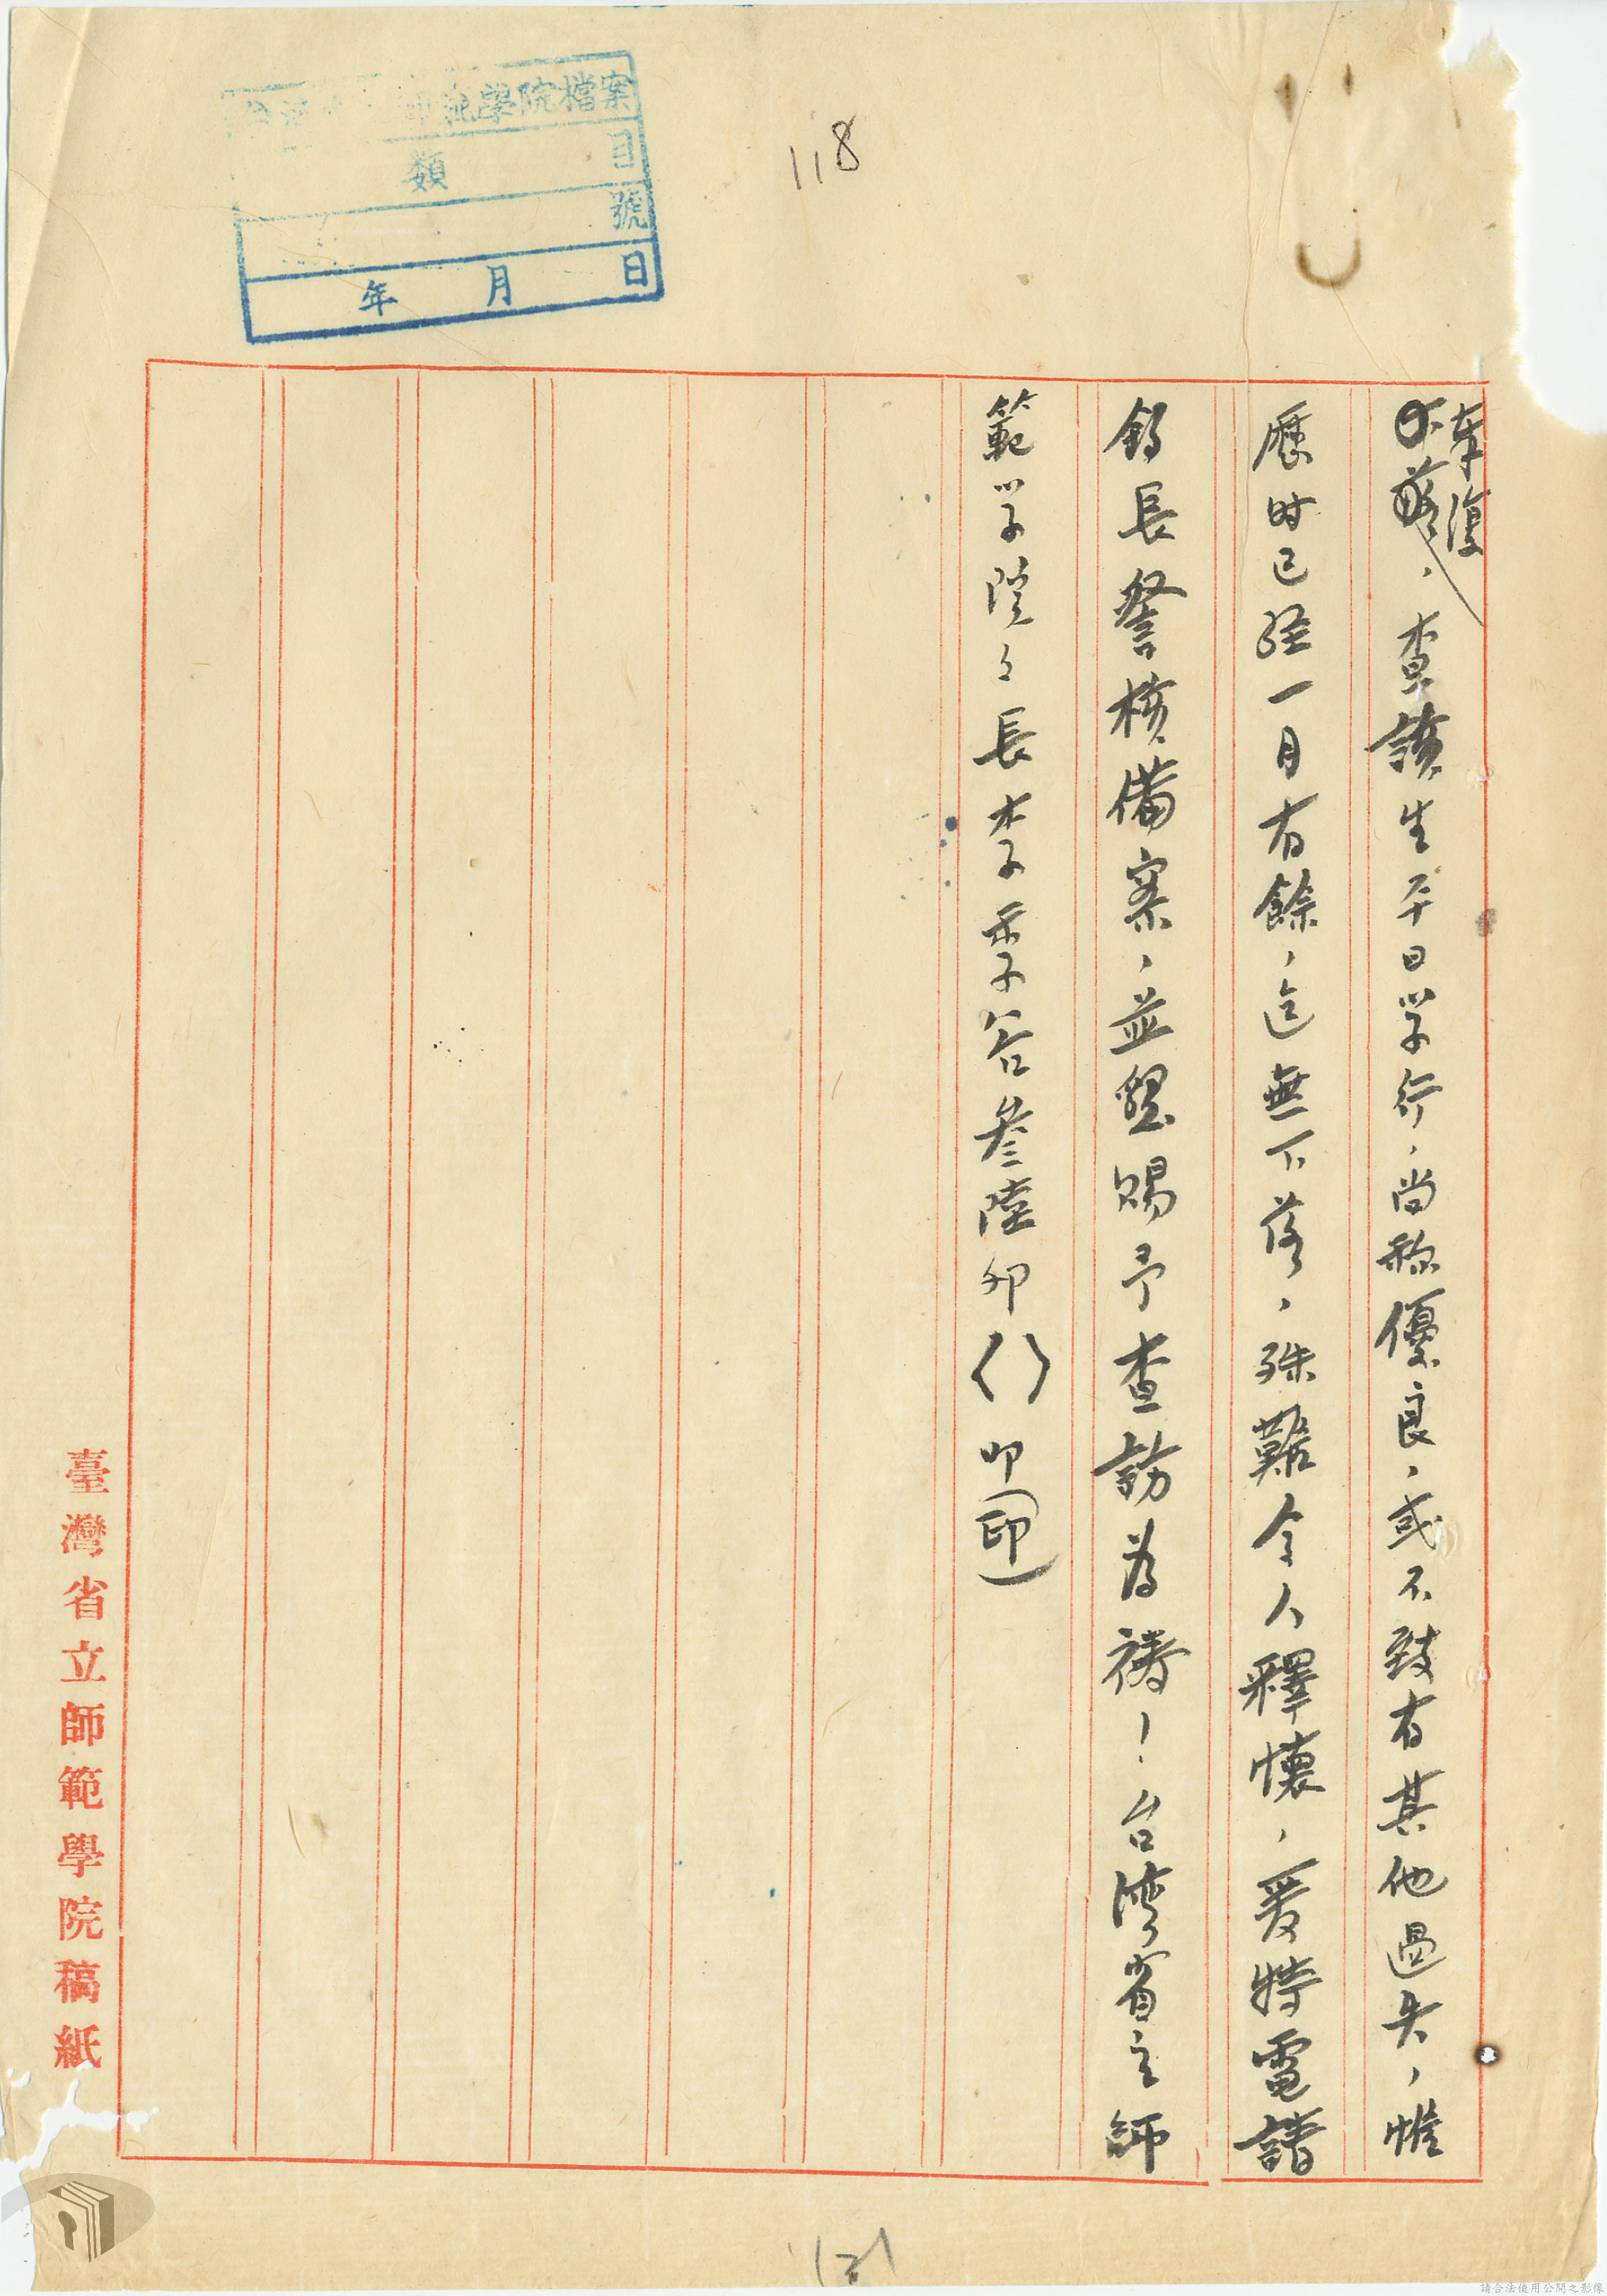 檔案
學院
類 目
號
年 月 日
118
奉復
查該生平日学行，尚称優良，或不致有其他過失，惟
歷时已经一月有餘，迄無下落，殊難令人釋懷，爰特電請
鈞長詧核備案，並懇賜予查訪為禱！台湾省立師
範学院々長李季谷叁陸卯（）叩（印）
臺灣省立師範學院稿紙
121
請合法使用公開之影像